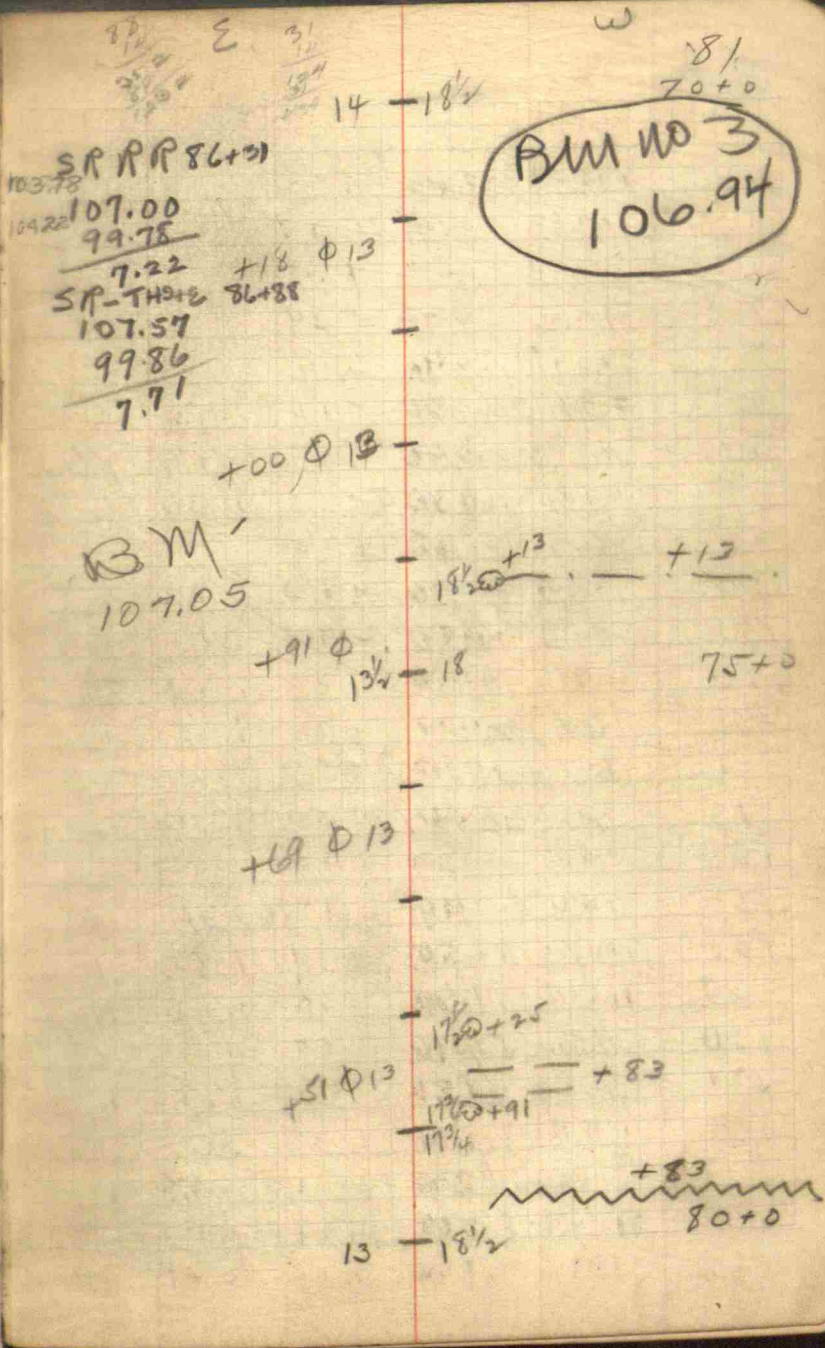 E
W
31
81
70+0
14 18½
BM no 3
106.94
SR RR 86+31
103.78
107.00
104.22
99.78
7.22
+18 Φ 13
SR-TH 86+88
107.57
99.86
7.71
+00 Φ 13
BM
107.05
18½ +13
+13
+91 Φ
13½ 18
75+0
+69 Φ 13
17½ +25
+51 Φ 13
+83
+91
17¾
+83
80+0
13 18½